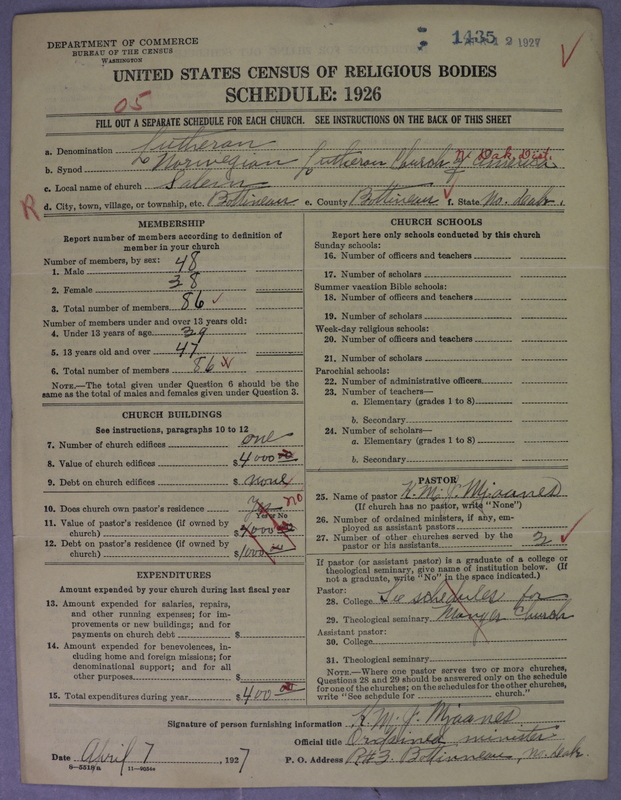 DEPARTMENT OF COMMERCE
BUREAU OF THE CENSUS
WASHINGTON
1435
12 1927
UNITED STATES CENSUS OF RELIGIOUS BODIES
SCHEDULE: 1926
05
FILL OUT A SEPARATE SCHEDULE FOR EACH CHURCH. SEE INSTRUCTIONS ON THE BACK OF THIS SHEET
a. Denomination Lutheran
b. Synod Norwegian Lutheran Church of America N. Dak. Dist.
c. Local name of church Salem
R d. City, town, village, or township, etc. Bottineau e. County Bottineau f. State No. Dak.
MEMBERSHIP
Report number of members according to definition of
member in your church
Number of members, by sex:
1. Male 48
2. Female 38
3. Total number of members 86
Number of members under and over 13 years old:
4. Under 13 years of age 39
5. 13 years old and over 47
6. Total number of members 86
NOTE.—The total given under Question 6 should be the
same as the total of males and females given under Question 3.
CHURCH BUILDINGS
See instructions, paragraphs 10 to 12
7. Number of church edifices one
8. Value of church edifices $ 4000 00
9. Debt on church edifices $ none
10. Does church own pastor's residence Yes no
Yes or No
11. Value of pastor's residence (if owned by
church) $ 000 00
12. Debt on pastor's residence (if owned by
church) $ 1000 00
EXPENDITURES
Amount expended by your church during last fiscal year
13. Amount expended for salaries, repairs,
and other running expenses; for im-
provements or new buildings; and for
payments on church debt $
14. Amount expended for benevolences, in-
cluding home and foreign missions; for
denominational support; and for all
other purposes $
15. Total expenditures during year $ 400 00
CHURCH SCHOOLS
Report here only schools conducted by this church
Sunday schools:
16. Number of officers and teachers
17. Number of scholars
Summer vacation Bible schools:
18. Number of officers and teachers
19. Number of scholars
Week-day religious schools:
20. Number of officers and teachers
21. Number of scholars
Parochial schools:
22. Number of administrative officers
23. Number of teachers—
a. Elementary (grades 1 to 8)
b. Secondary
24. Number of scholars—
a. Elementary (grades 1 to 8)
b. Secondary
PASTOR
25. Name of pastor K. M. J. Mjaanes
(If church has no pastor, write "None")
26. Number of ordained ministers, if any, em-
ployed as assistant pastors
27. Number of other churches served by the
pastor or his assistants 3
If pastor (or assistant pastor) is a graduate of a college or
theological seminary, give name of institution below. (If
not a graduate, write "No" in the space indicated.)
Pastor:
28. College See schedules for
29. Theological seminary Manger Church
Assistant pastor:
30. College
31. Theological seminary
NOTE.—Where one pastor serves two or more churches,
Questions 28 and 29 should be answered only on the schedule
for one of the churches; on the schedules for the other churches,
write "See schedule for church."
Signature of person furnishing information K. M. J. Mjaanes
Official title Ordained minister
Date April 7, 1927 P. O. Address R#3. Bottinneau, No. Dak.
8—5518a 11—9024a